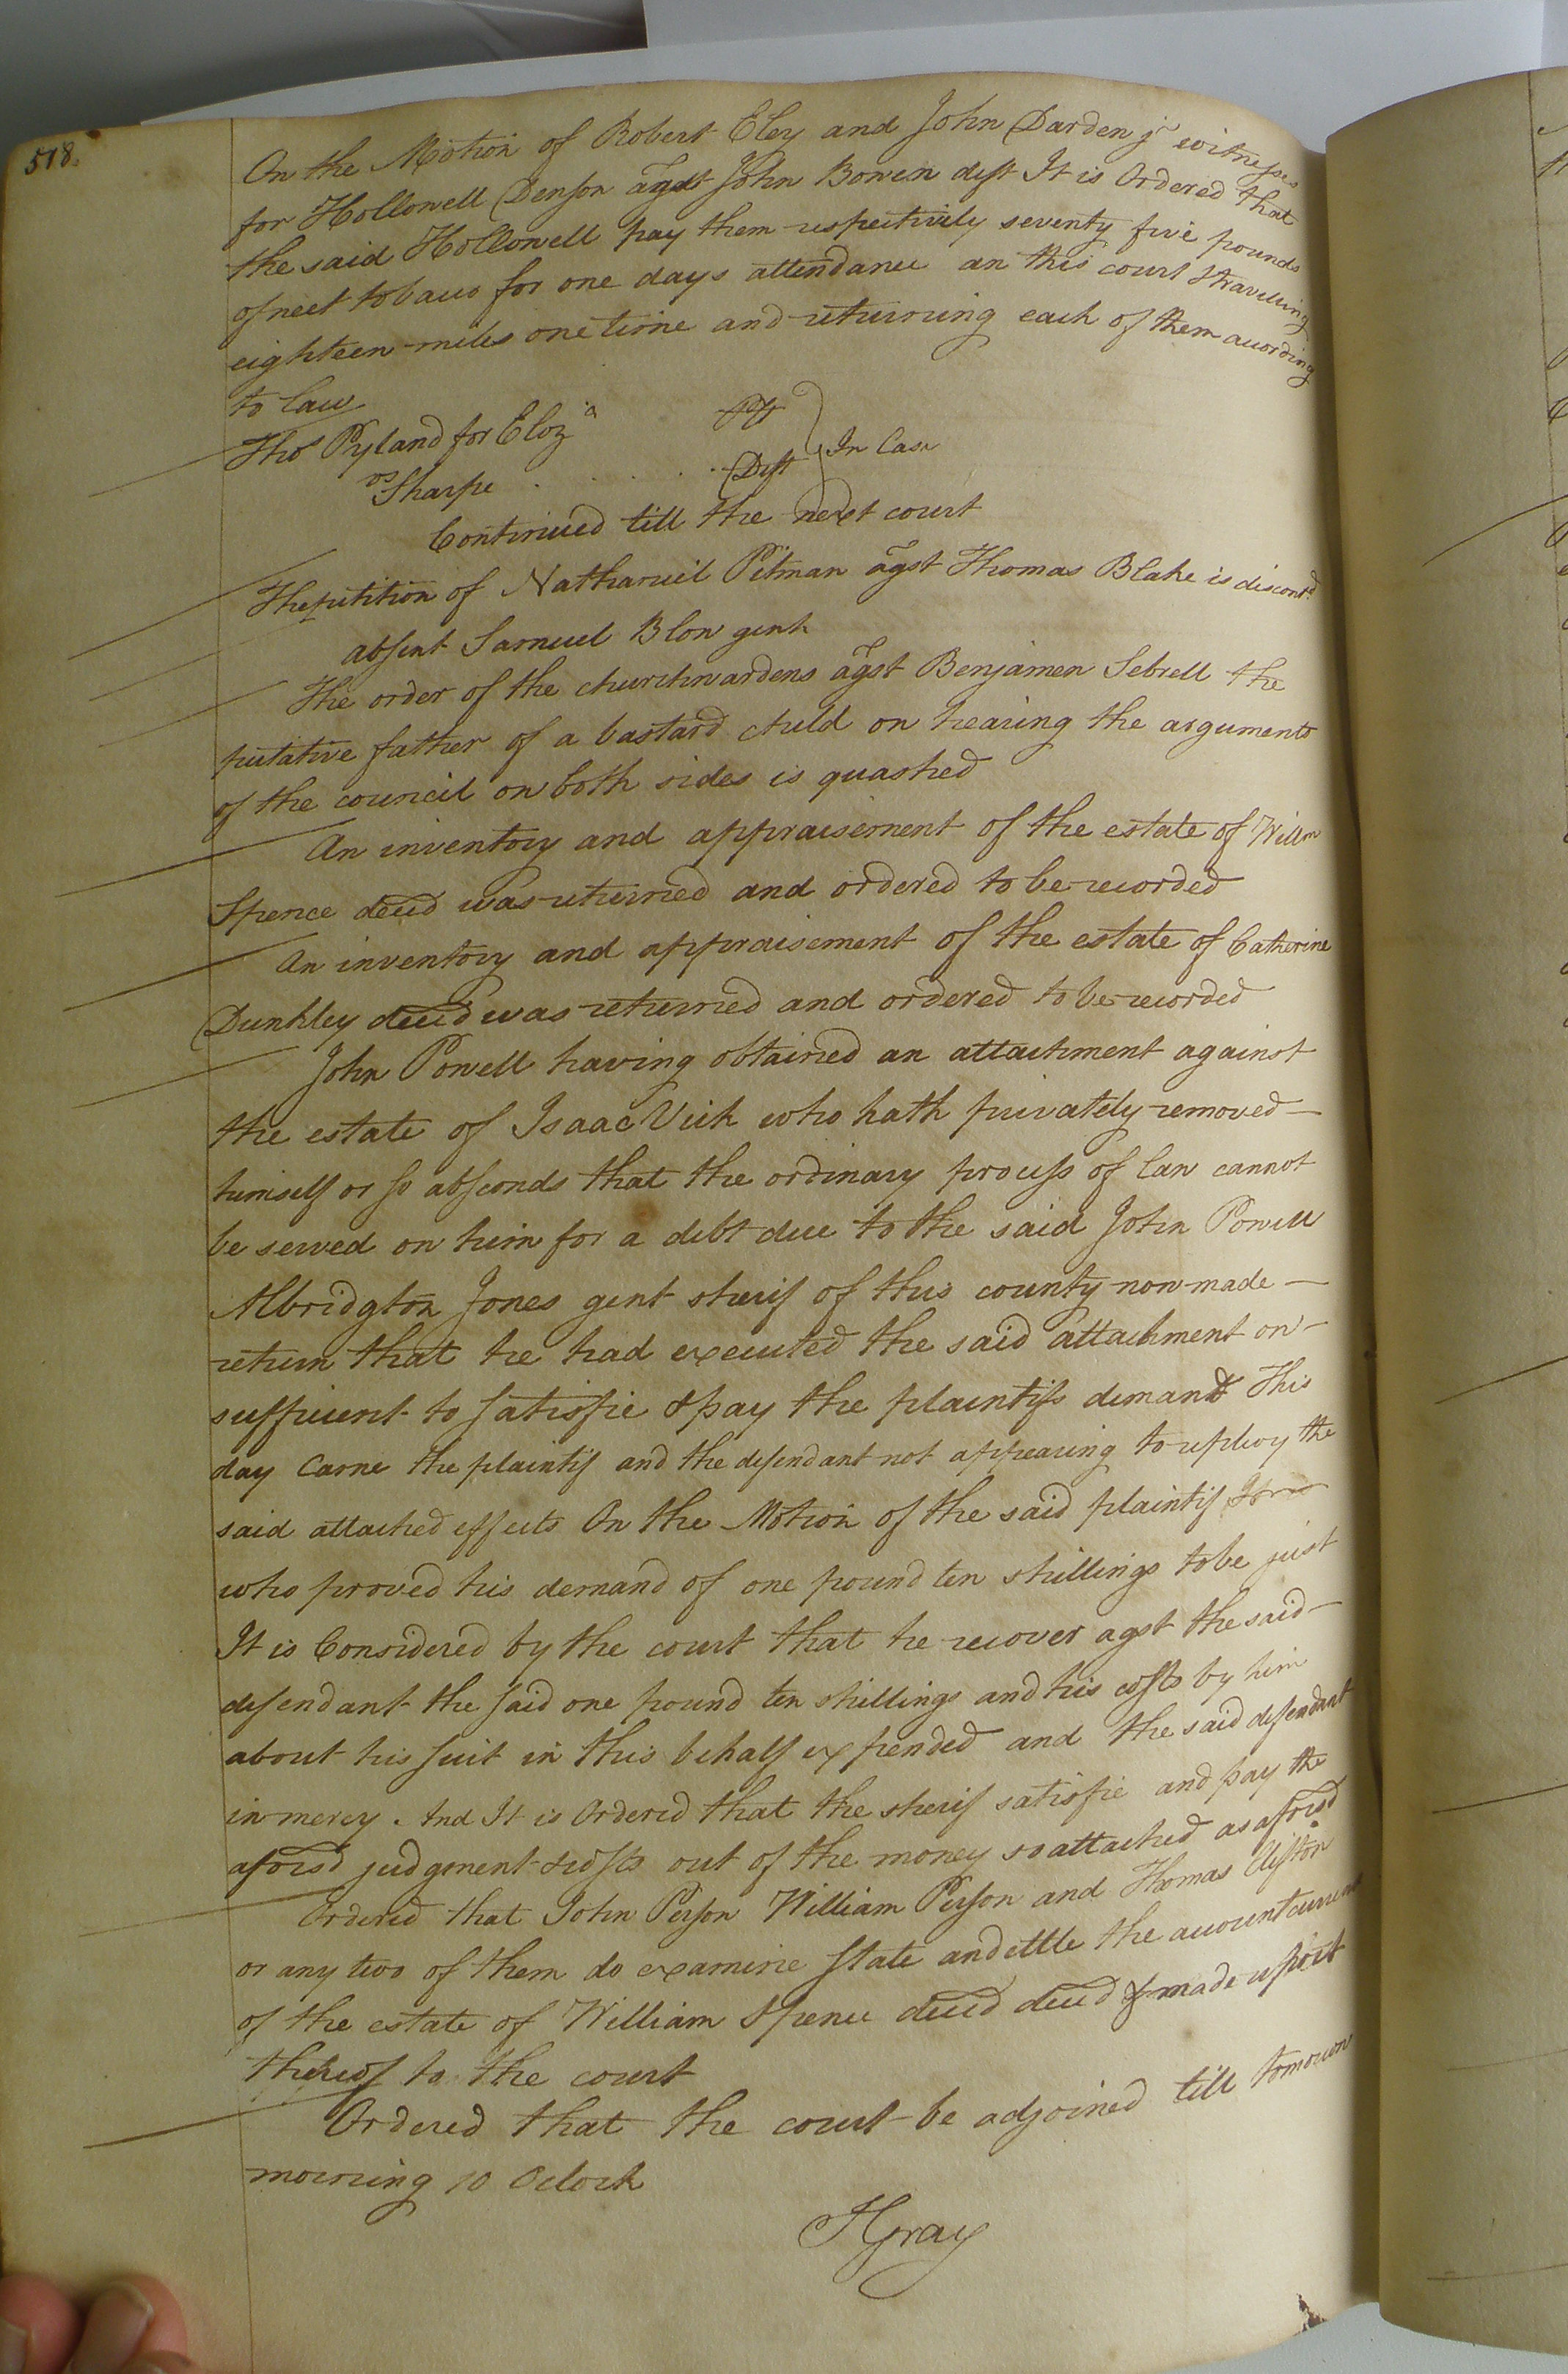 518.
On the Motion of Robert Eley and John Darden jr witnesses
for Hollowell Denson agst John Bowen deft It is Ordered that
the said Hollowell pay them respectively seventy five pounds
of neet tobacco for one days attendance an this court & travelling
eighteen miles one time and returning each of them according
to law
Thos Pyland for Eloza Plt
vs In Case
Sharpe . . . . Deft
Continued till the next court
The petition of Nathaniel Pitman agst Thomas Blake is discontd
absent Samuel Blow gent
The order of the churchwardens agst Benjamen Sebrell the
putative father of a bastard child on hearing the arguments
of the council on both sides is quashed
An inventory and appraisement of the estate of Willm
Spence decd was returned and ordered to be recorded
An inventory and appraisement of the estate of Catherine
Dunkley decd was returned and ordered to be recorded
John Powell having obtained an attachment against
the estate of Isaac Vick who hath privately removed
himself or so absconds that the ordinary process of law cannot
be served on him for a debt due to the said John Powell
Albridgton Jones gent sherif of this county now made
return that he had executed the said attachment on
sufficient to satisfie & pay the plaintifs demand This
day Came the plaintif and the defendant not appearing to replevy the
said attached effects On the Motion of the said plaintif
who proved his demand of one pound ten shillings to be just
It is Considered by the court that he recover agst the said
defendant the said one pound ten shillings and his costs by him
about his suit in this behalf expended and the said defendant
in mercy. And It is Ordered that the sherif satisfie and pay the
aforesd judgment & costs out of the money so attached as aforesd
Ordered that John Person William Person and Thomas Clifton
or any two of them do examine state and settle the account current
of the estate of William Spence decd decd & made report
thereof to the court
Ordered that the court be adjoined till tomorrow
morning 10 Oclock
HGray